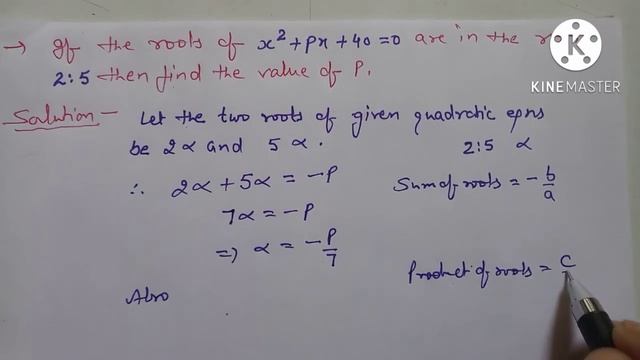 → If the roots of x²+px+40=0 are in the
2:5 then find the value of P.
Solution - Let the two roots of given quadratic eqns
be 2α and 5α.
2:5 α
∴ 2α + 5α = -P
Sum of roots = -b/a
7α = -P
=> α = -P/7
Product of roots = C
Also
K
KINEMASTER